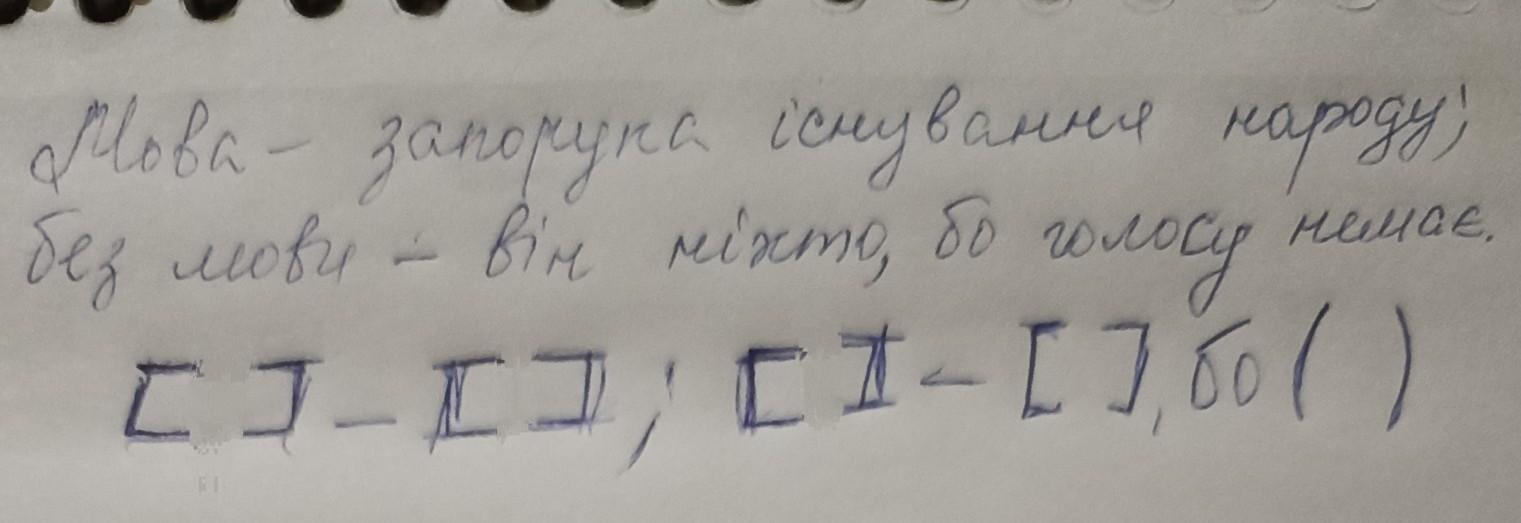 Мова – запорука існування народу;
без мови – він ніхто, бо голосу немає.
[ ] – [ ] ; [ ] – [ ], бо ( )